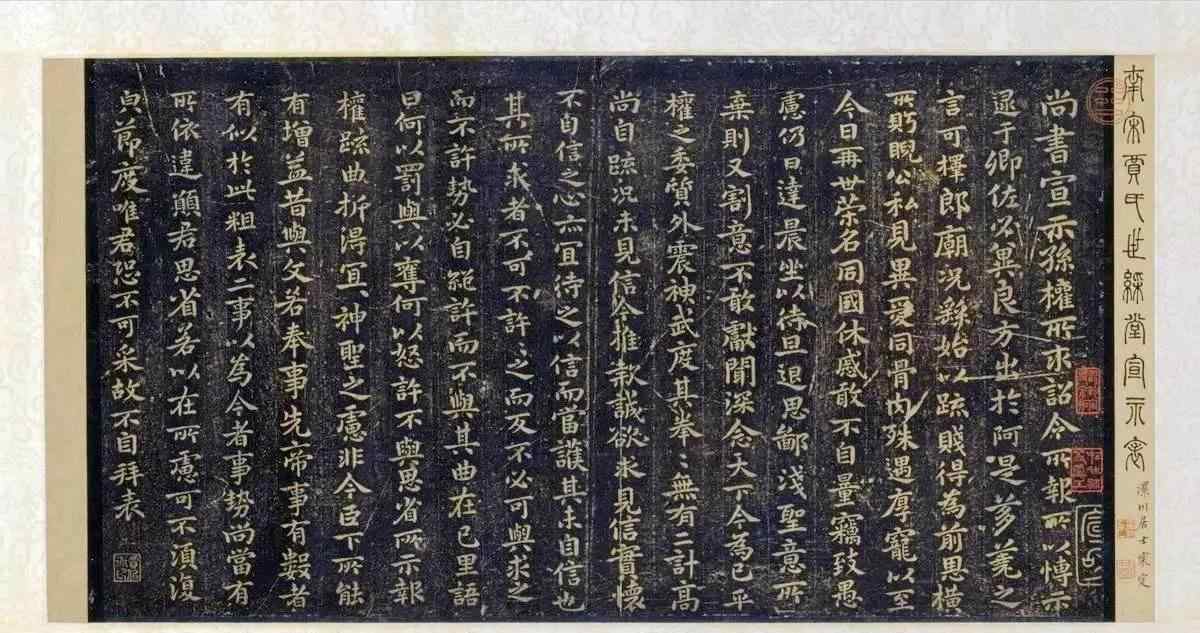 南宋賈氏世綵堂宣示表
川居士審定
尚書宣示孫權所求詔令所報所以博示
逮于卿佐必冀良方出於阿是芻蕘之
言可擇郎廟況繇始以疏賤得為前恩橫
所眄睨公私見異愛同骨肉殊遇厚寵以至
今日再世榮名同國休慼敢不自量竊致愚
慮仍日達晨坐以待旦退思鄙淺聖意所
棄則又割意不敢獻聞深念天下今為已平
權之委質外震神武度其拳〻無有二計高
尚自疏況未見信今推款誠欲求見信實懷
不自信之心亦宜待之以信而當護其未自信也
其所求者不可不許〻之而反不必可與求之
而不許勢必自絕許而不與其曲在己里語
曰何以罰與以奪何以怒許不與思省所示報
權疏曲折得宜〻神聖之慮非今臣下所能
有增益昔與文若奉事先帝事有數者
有似於此粗表二事以為今者事勢尚當有
所依違願君思省若以在所慮可不須復
皃節度唯君恐不可采故不自拜表